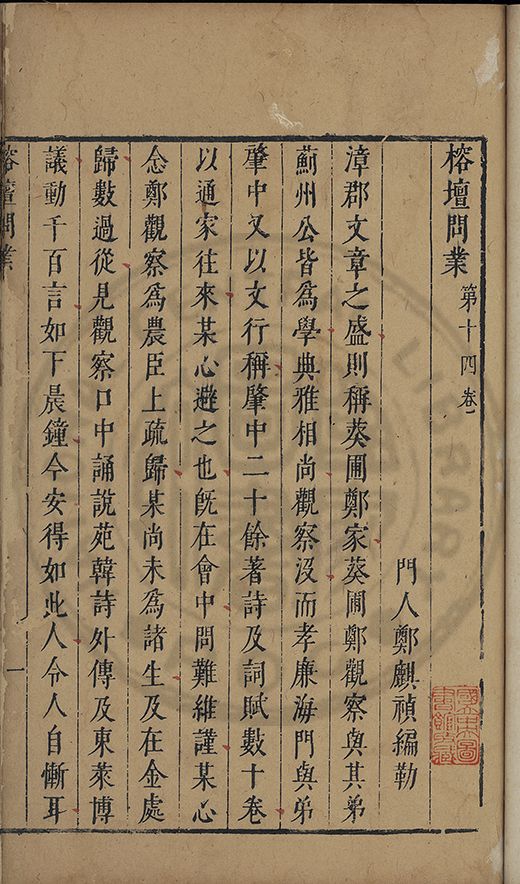 榕壇問業第十四卷
門人鄭麒禎編勒
漳郡文章之盛則稱葵圃鄭家葵圃鄭觀察與其弟
薊州公皆為學典雅相尚觀察沒而孝廉海門與弟
肇中又以文行稱肇中二十餘著詩及詞賦數十卷
以通家往來某心避之也旣在會中問難維謹某心
念鄭觀察為農臣上疏歸某尚未為諸生及在金處
歸數過從見觀察口中誦說苑韓詩外傳及東萊博
議動千百言如下晨鐘今安得如此人令人自慚耳
榕壇問業
一